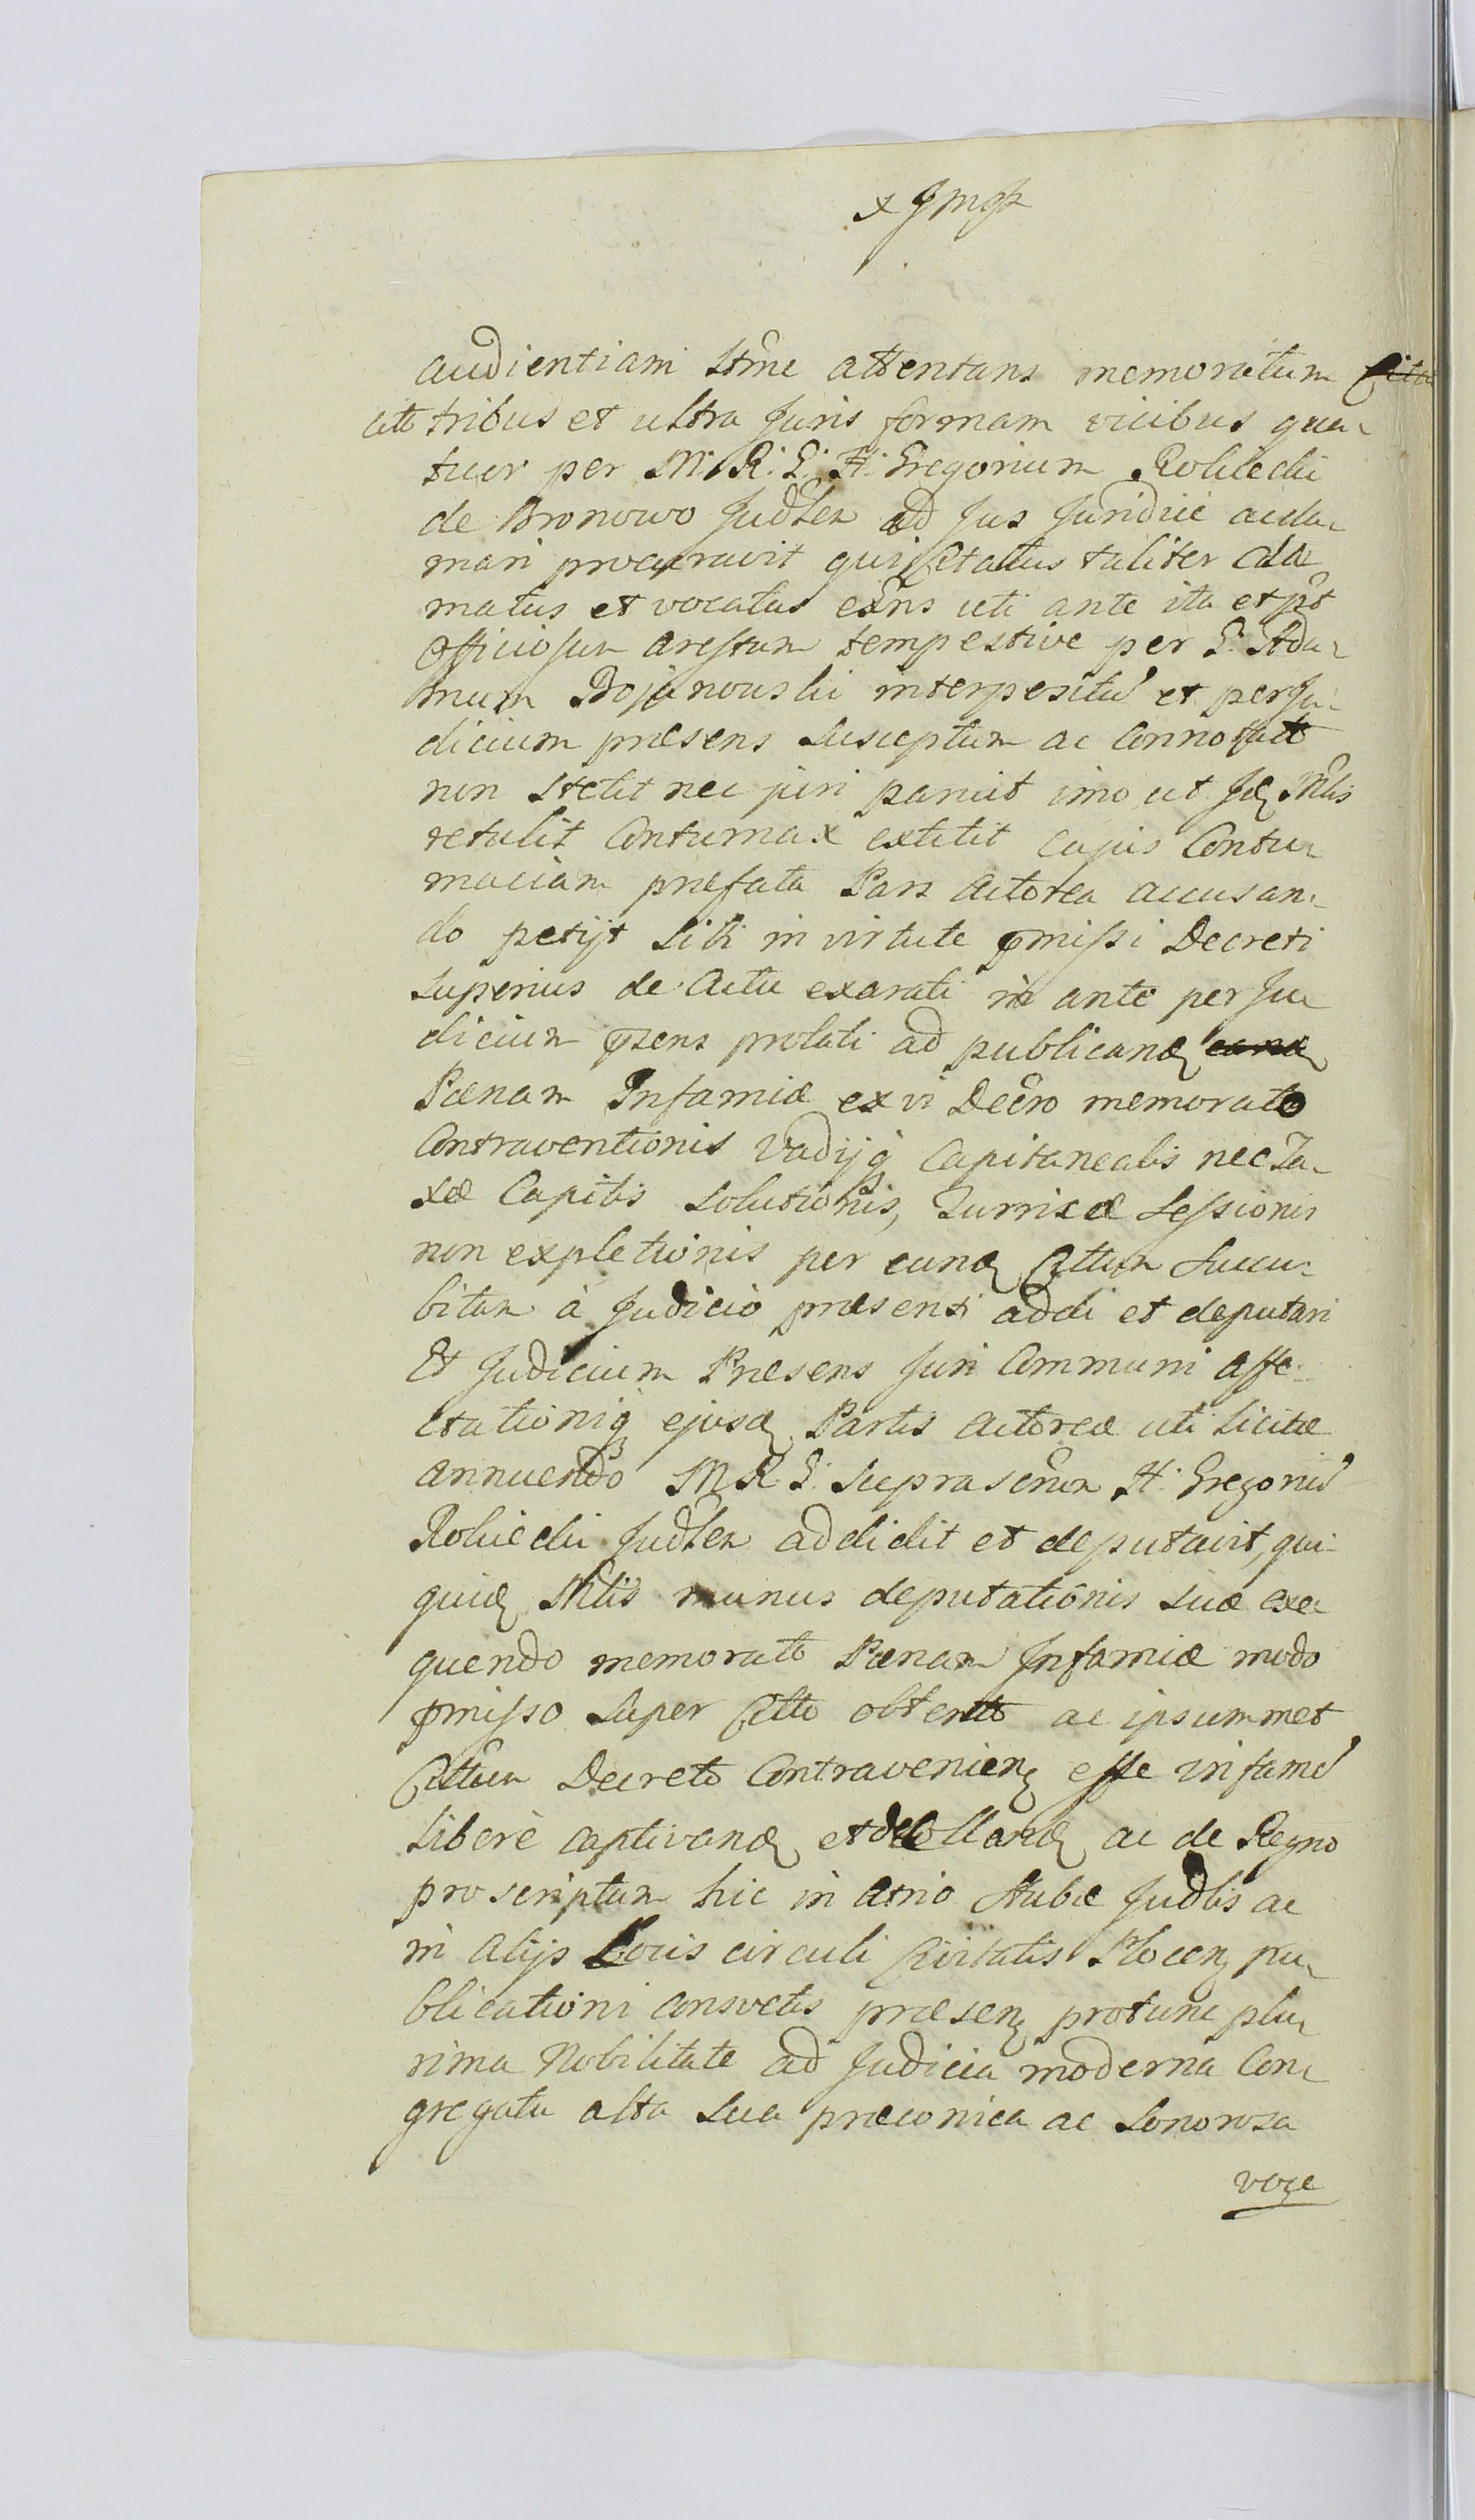 audientiam Ttme attentans memoratum
citt tribus et ultra Juris formam vicibus qua-
tuor per M: R: G: H: Gregorium Rokicki
de Bronowo Judlem ad Jus Juridice accla-
mari procuravit qui Citatus taliter cla
matus et vocatus exns uti ante ita et pt
Officiosum arestum tempestive per G. Ada-
mum Bojanowski interpositu et per Ju-
dicium præsens susceptum ac Connotatt
non stetit nec juri paruit imo ut Jdem Mtlis
retulit Contumax extitit cujus Contu-
maciam præfata Pars Actorea accusan-
do petijt sibi in virtute pmissi Decreti
superius de Actu exarati in ante per Ju
dicium psens prolati ad publicand
Pænam Infamiæ ex vi Decro memorato
Contraventionis Vadijq Capitanealis nec Ta-
xæ Capitis solutionis, Turrisæ sessionis
non expletionis per eund Cittum succu-
bitam à Judicio præsenti addi et deputari
Et Judicium Præsens Juri Communi affe-
ctationiq ejusd Partis Actoreæ uti licitæ
annuendo M R. G: suprascrum H: Gregoriu
Rokicki Judlem addidit et deputavit, qui-
quid Mtlis munus deputationis suæ exe-
quendo memorato Pænam Infamiæ modo
pmisso super Citto obtento ac ipsummet
Cittum Decreto Contravenien esse infame
libere captivand et decolland ac de Regno
proscriptum hic in atrio stubæ Judlis ac
in alijs Locis circuli Civitatis Plocen pu-
blicationi consvetis præsen protunc plu-
rima Nobilitate ad Judicia moderna Con-
gregata alta sua præconica ac sonorosa
voce